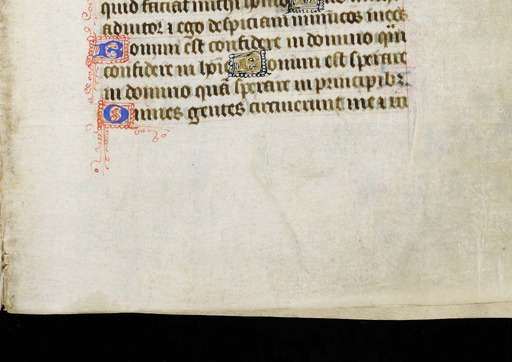 quid faciat michi homo
adiutor ⁊ ego despiciam inimicos meos
Bonum est confidere in domino qm̄
confidere in hoī Bonum est sperare
in domino quā sperare in principibꝫ
Omnes gentes circuierunt me ⁊ in